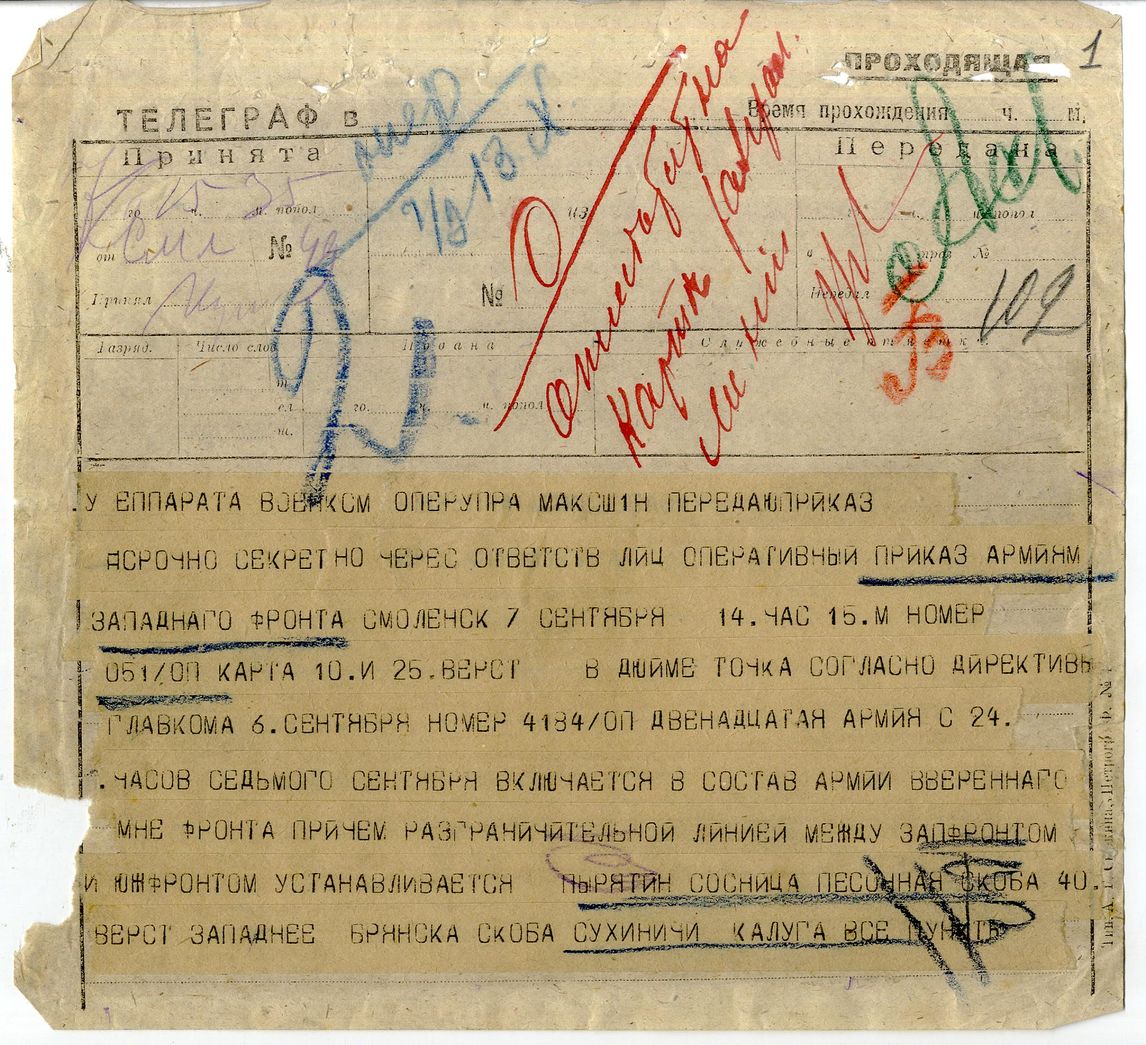 ПРОХОДЯЩАЯ
1
ТЕЛЕГРАФ в
Время прохождения ч. м.
Принята
Передана
го ч. м. попол
из
попол
от Смл № 
№
№
Принял
Передал
102
Разряд.
Число слов
Подана
Служебные отметки.
го. ч. м. попол.
отметить на
карте разгран.
линии
.У ЕППАРАТА ВОЕНКСМ ОПЕРУПРА МАКСШ1Н ПЕРЕДАЮПРИКАЗ
АСРОЧНО СЕКРЕТНО ЧЕРЕС ОТВЕТСТВ ЛИЦ ОПЕРАТИВНЫЙ ПРИКАЗ АРМИЯМ
ЗАПАДНАГО ФРОНТА СМОЛЕНСК 7 СЕНТЯБРЯ 14.ЧАС 15.М НОМЕР
051/ОП КАРТА 10.И 25.ВЕРСТ В ДЮЙМЕ ТОЧКА СОГЛАСНО ДИРЕКТИВЫ
ГЛАВКОМА 6.СЕНТЯБРЯ НОМЕР 4184/ОП ДВЕНАДЦАТАЯ АРМИЯ С 24.
.ЧАСОВ СЕДЬМОГО СЕНТЯБРЯ ВКЛЮЧАЕТСЯ В СОСТАВ АРМИИ ВВЕРЕННАГО
МНЕ ФРОНТА ПРИЧЕМ РАЗГРАНИЧИТЕЛЬНОЙ ЛИНИЕЙ МЕЖДУ ЗАПФРОНТОМ
И ЮЖФРОНТОМ УСТАНАВЛИВАЕТСЯ ПЫРЯТИН СОСНИЦА ПЕСОЧНАЯ СКОБА 40.
ВЕРСТ ЗАПАДНЕЕ БРЯНСКА СКОБА СУХИНИЧИ КАЛУГА ВСЕ ПУНКТЫ